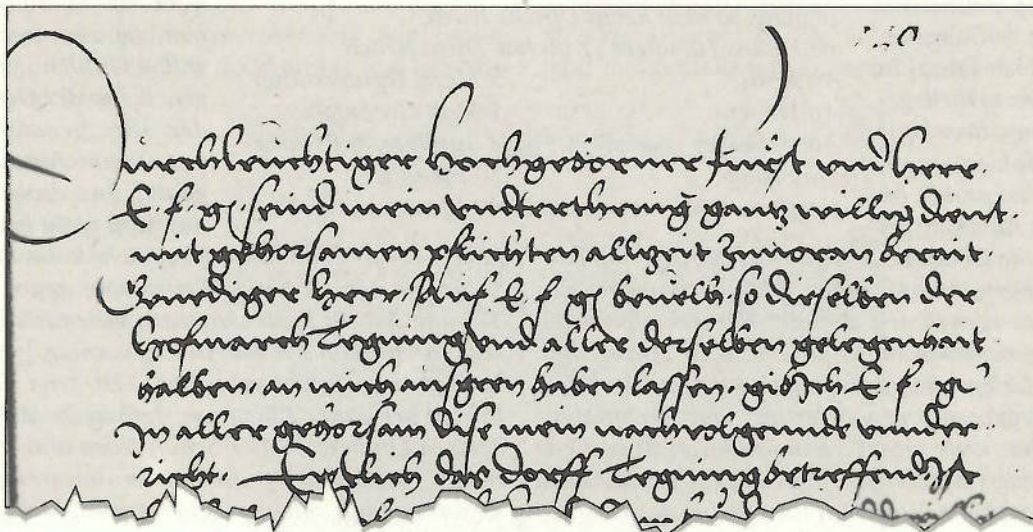 Durchleuchtiger Hochgeborner Fürst vnd Herr.
E. f. g. seind mein vndterthenig gantz willig dienst.
mit gehorsamen pflichten allzeit zuuoran berait.
Genediger Herr. Auf E. f. g. beuelh. so dieselben der
Hofmarch Tegning vnd aller derselben gelegenhait
halben. an mich ausgeen haben lassen. gib Ich E. f. g.
in aller gehorsam dise mein nachuolgennde vnnder
richt. Erstlich das Dorff Tegning betreffend Ist